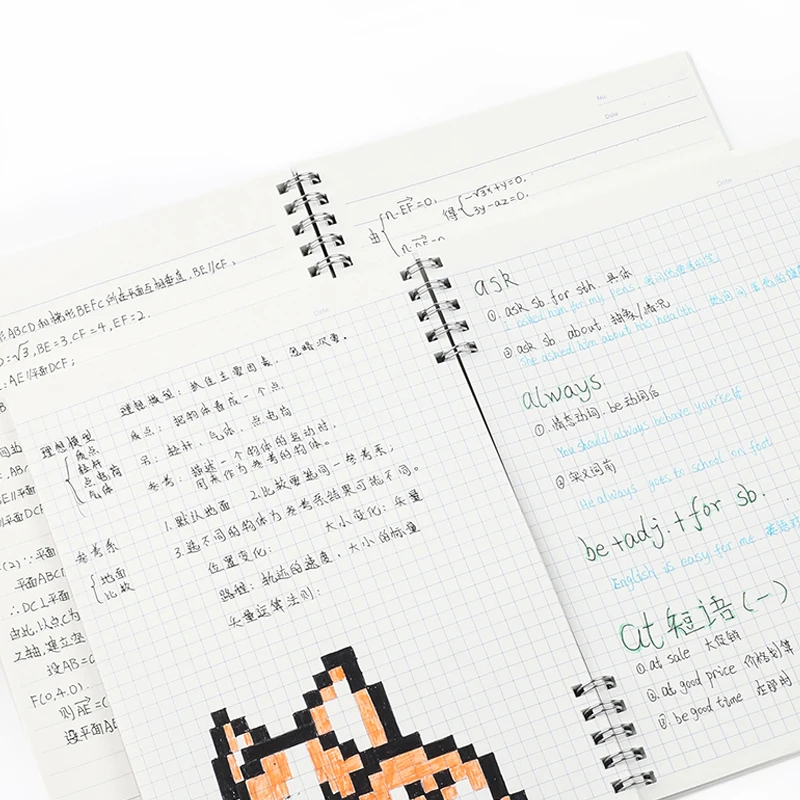 No.
Date
由{n·EF=0,
得{-√3x+y=0.
3y-az=0.
形ABCD和梯形BEFC所在平面互相垂直, BE//CF,
=√3, BE=3, CF=4, EF=2.
:AE//平面DCF;
Date
理想模型: 抓住主要因素, 忽略次要.
理想模型
质点
杠杆
点电荷
气体
质点: 把物体看成一个点.
杠杆、气体、点电荷
参考: 描述一个物体的运动时,
用来作为参考的物体.
1.默认地面 2.比较要选同一参考系;
3.选不同的物体为参考系结果可能不同.
参考系
{地面
比较
位置变化: 大小变化: 矢量
路程: 轨迹的长度, 大小的标量
矢量运算法则:
(2)∵平面
平面ABCD
∴DC⊥平面
由此,以点C为
Z轴,建立空
设AB=a
F(0,4,0).
则AE=(
设平面AE
Date
ask
①. ask sb for sth 具体
I asked him for my pens.
②ask sb about 抽象/情况
She asked him about his health
always
①.情态动词. be动词后
You should always behave yourself
②实义词前
He always goes to school on foot
be+adj.+for sb.
English is easy for me
at短语(一)
①.at sale 大促销
②.at good price 价格划算
③.be good time